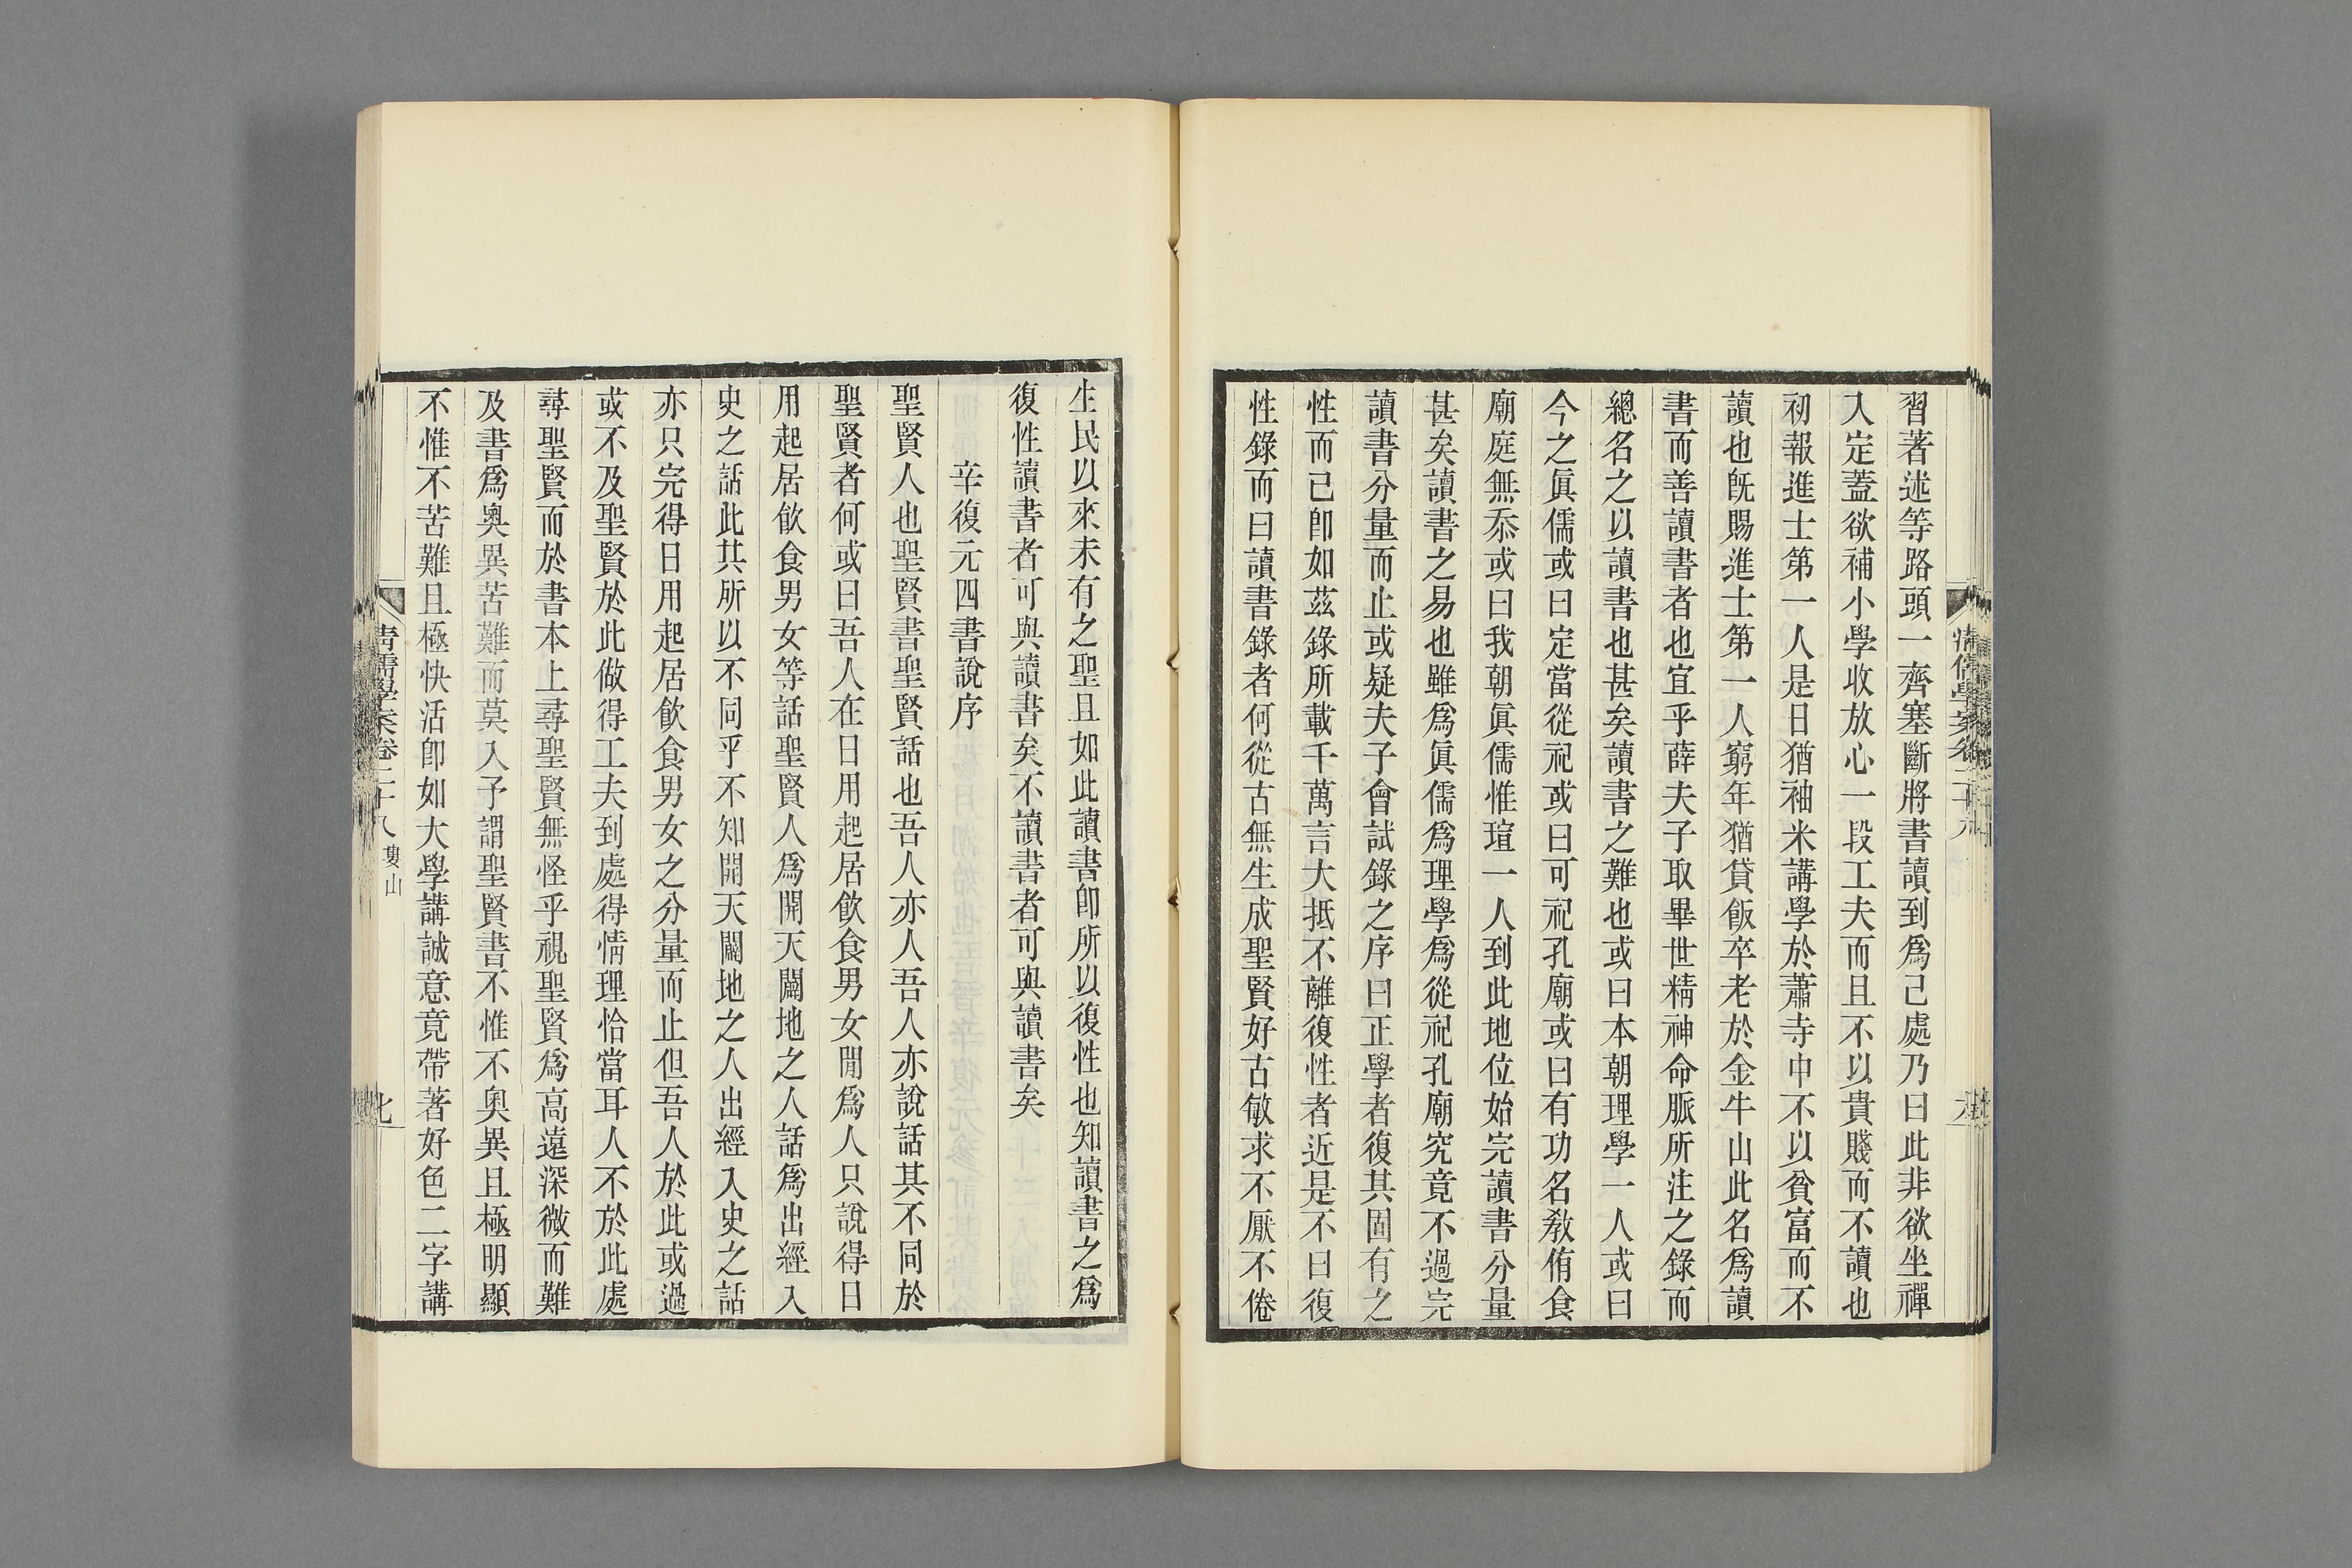 習著述等路頭一齊塞斷將書讀到爲己處乃曰此非欲坐禪
入定蓋欲補小學收放心一段工夫而且不以貴賤而不讀也
初報進士第一人是日猶袖米講學於蕭寺中不以貧富而不
讀也旣賜進士第一人窮年猶貸飯卒老於金牛山此名爲讀
書而善讀書者也宜乎薛夫子取畢世精神命脈所注之錄而
總名之以讀書也甚矣讀書之難也或曰本朝理學一人或曰
今之眞儒或曰定當從祀或曰可祀孔廟或曰有功名教侑食
廟庭無忝或曰我朝眞儒惟瑄一人到此地位始完讀書分量
甚矣讀書之易也雖爲眞儒爲理學爲從祀孔廟究竟不過完
讀書分量而止或疑夫子會試錄之序曰正學者復其固有之
性而已卽如茲錄所載千萬言大抵不離復性者近是不曰復
性錄而曰讀書錄者何從古無生成聖賢好古敏求不厭不倦
生民以來未有之聖且如此讀書卽所以復性也知讀書之爲
復性讀書者可與讀書矣不讀書者可與讀書矣
辛復元四書說序
聖賢人也聖賢書聖賢話也吾人亦人吾人亦說話其不同於
聖賢者何或曰吾人在日用起居飮食男女閒爲人只說得日
用起居飮食男女等話聖賢人爲開天闢地之人話爲出經入
史之話此其所以不同乎不知開天闢地之人出經入史之話
亦只完得日用起居飮食男女之分量而止但吾人於此或過
或不及聖賢於此做得工夫到處得情理恰當耳人不於此處
尋聖賢而於書本上尋聖賢無怪乎視聖賢爲高遠深微而難
及書爲奧異苦難而莫入予謂聖賢書不惟不奧異且極明顯
不惟不苦難且極快活卽如大學講誠意竟帶著好色二字講
清儒學案卷二十八 婁山